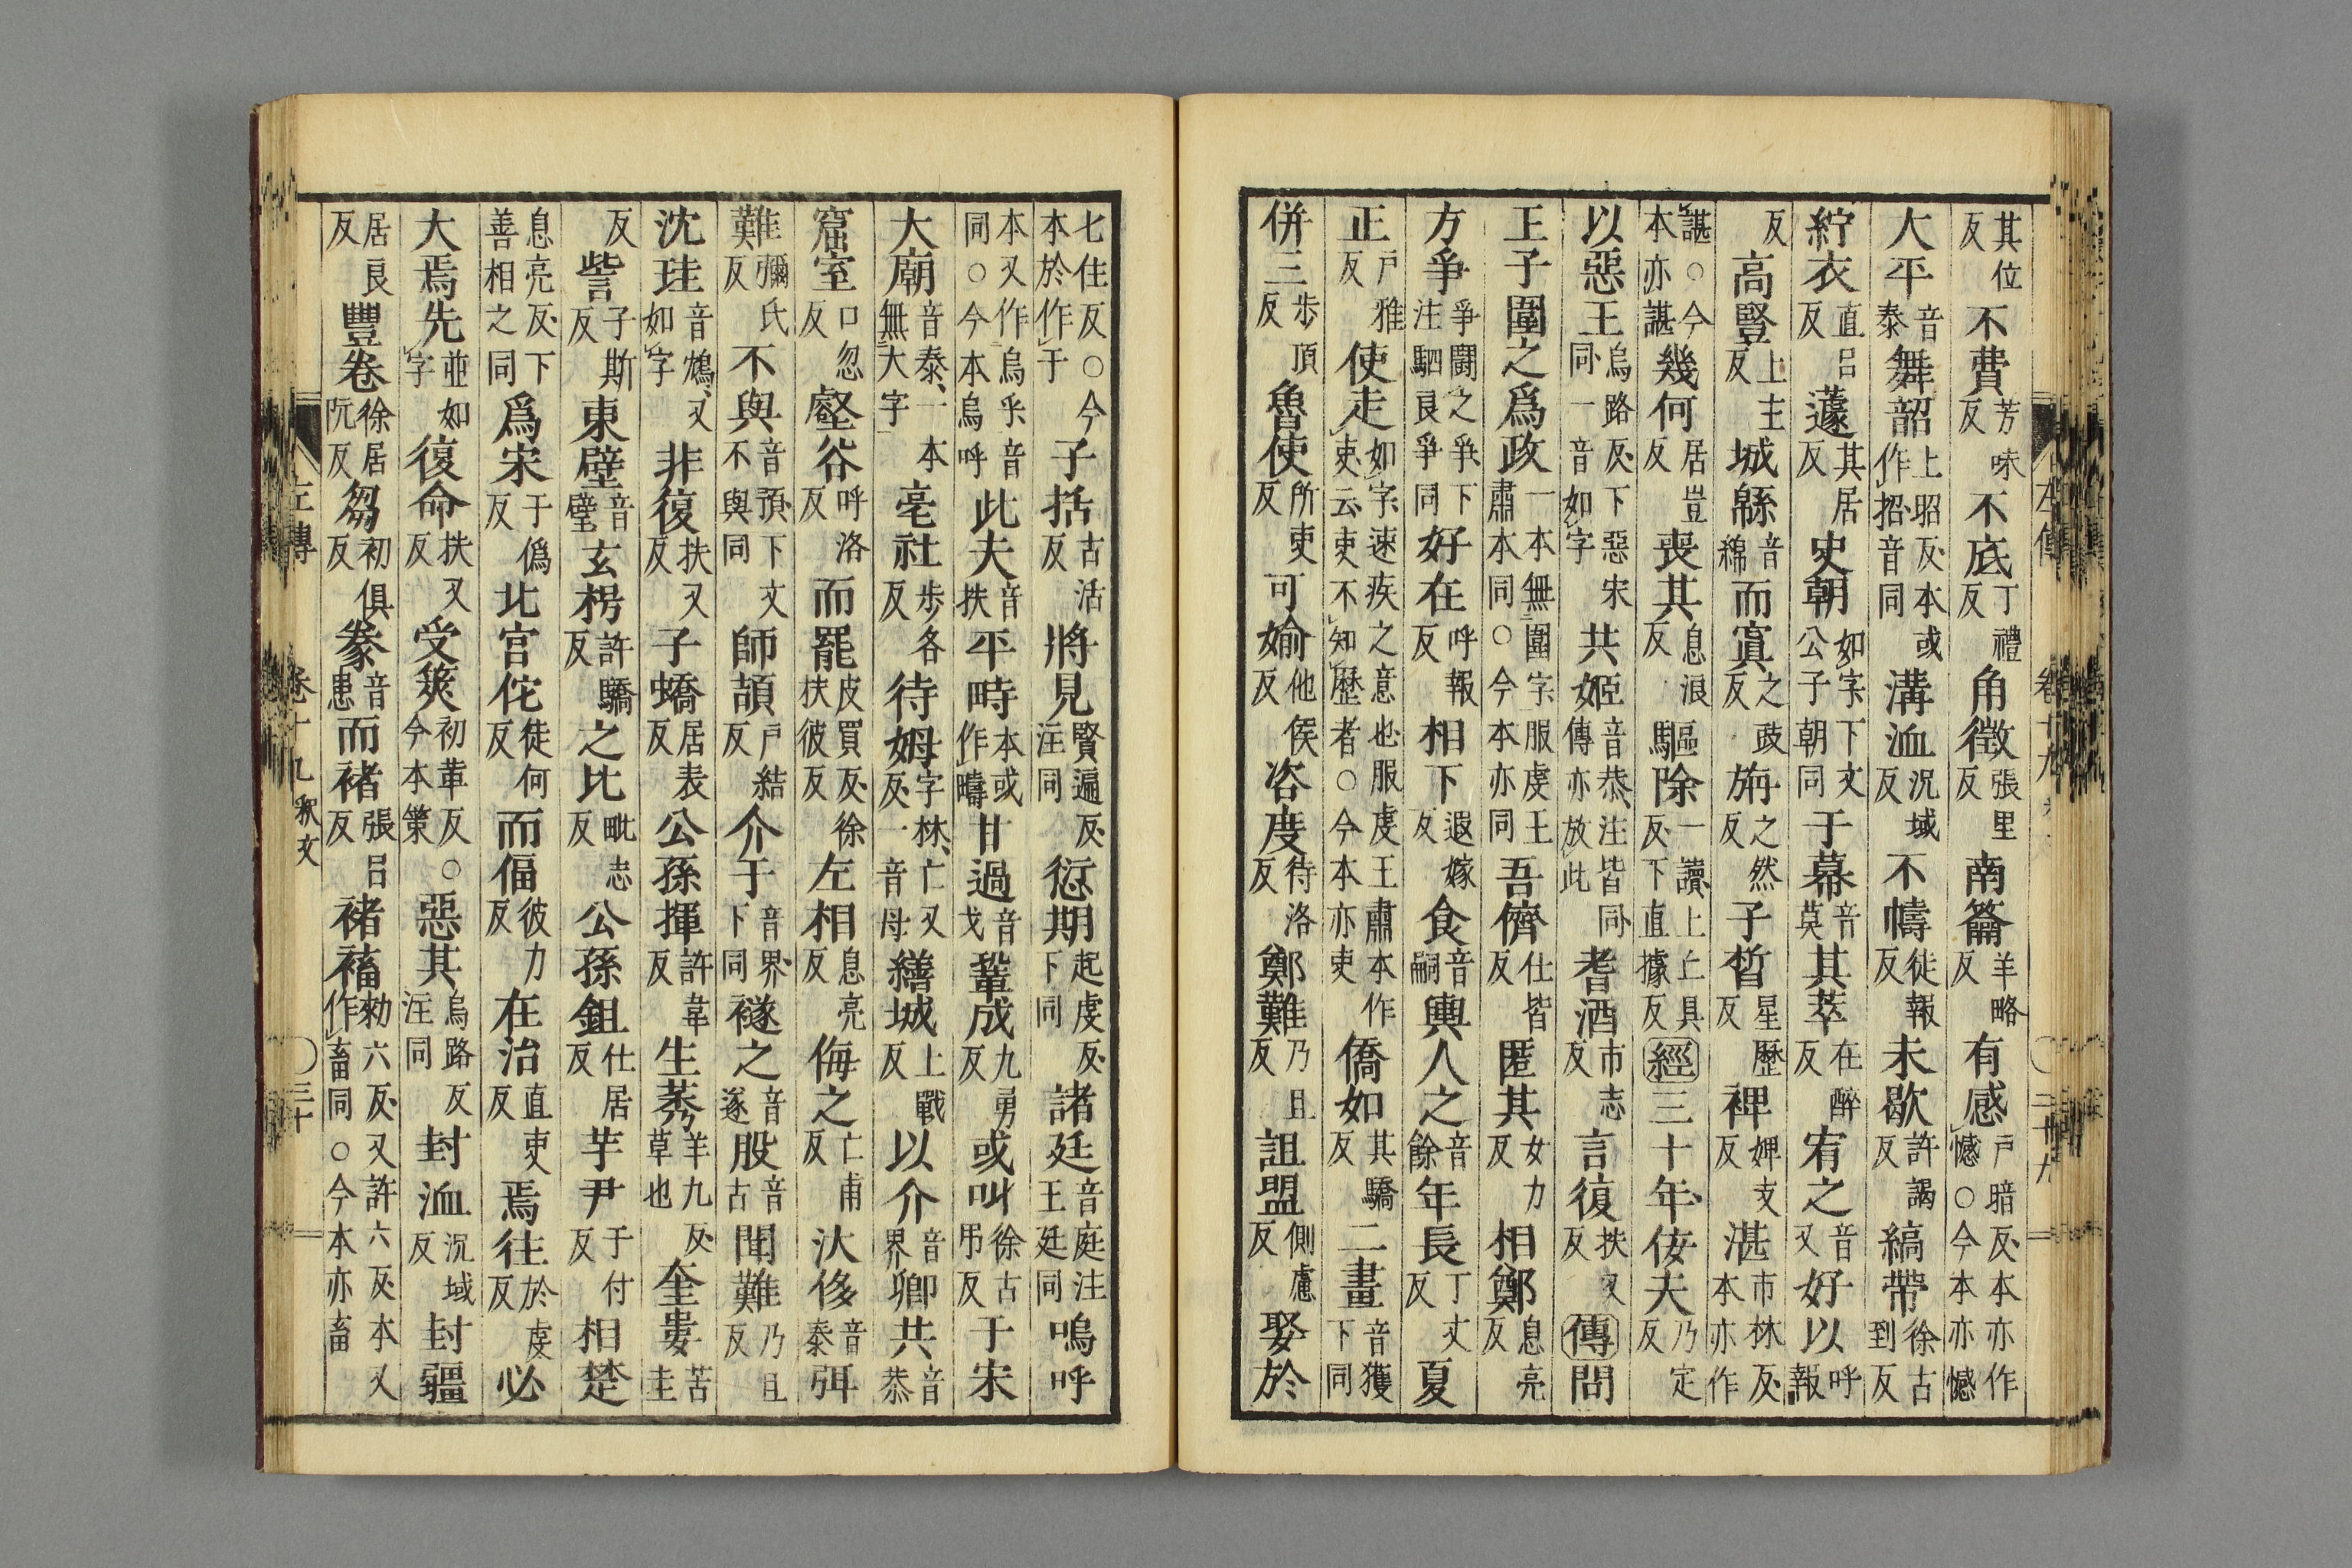 其位反不費芳味反不底丁禮反角徵張里反南籥羊略反有感戶暗反本亦作憾○今本亦憾
大平音泰舞韶上昭反本或作招音同溝洫況域反不幬徒報反未歇許謁反縞帶徐古到反
紵衣直呂反蘧其居反史朝如字下文公子朝同于幕音莫其萃在醉反宥之音又好以呼報
反高豎上主反城緜音綿而寘之豉反旃之然反子晳星歷反裨婢支反湛市林反本亦作
諶○今本亦諶幾何居豈反喪其息浪反驅除一讀上丘具反下直據反經三十年佞夫乃定反
以惡王烏路反下惡宋同一音如字共姬音恭注皆同傳亦放此耆酒市志反言復扶又反傳問
王子圍之爲政一本無圍字服虔王肅本同○今本亦同吾儕仕皆反匿其女力反相鄭息亮反
方爭爭鬭之爭下注駟良爭同好在呼報反相下遐嫁反食音嗣輿人之音餘年長丁丈反夏
正戶雅反使走如字速疾之意也服虔王肅本作吏云吏不知歷者○今本亦吏僑如其驕反二畫音獲下同
併三步頂反魯使所吏反可媮他侯反咨度待洛反鄭難乃旦反詛盟側慮反娶於
左傳 卷十九
七住反○今本於作于子括古活反將見賢遍反注同愆期起虔反下同諸廷音庭注王廷同嗚呼
本又作烏乎音同○今本烏呼此夫音扶平畤本或作疇甘過音戈鞏成九勇反或叫徐古弔反于宋
大廟音泰一本無大字亳社步各反待姆字林亡又反一音母繕城上戰反以介音界卿共音恭
窟室口忽反壑谷呼洛反而罷皮買反徐扶彼反左相息亮反侮之亡甫反汏侈音泰弭
難彌氏反不與音預下文不與同師頡戶結反介于音界下同襚之音遂股音古聞難乃旦反
沈珪音鴆又如字非復扶又反子蟜居表反公孫揮許韋反生莠羊九反草也奎婁苦圭
反訾子斯反東壁音璧玄枵許驕反之比毗志反公孫鉏仕居反芋尹于付反相楚
息亮反下善相之同爲宋于僞反北宮佗徒何反而偪彼力反在治直吏反焉往於虔反必
大焉先並如字復命扶又反受筴初革反○今本策惡其烏路反注同封洫況域反封疆
居良反豐卷徐居阮反芻初俱反豢音患而褚張呂反褚稸勑六反又許六反本又作畜同○今本亦畜
左傳 卷十九 釈文 ○三十